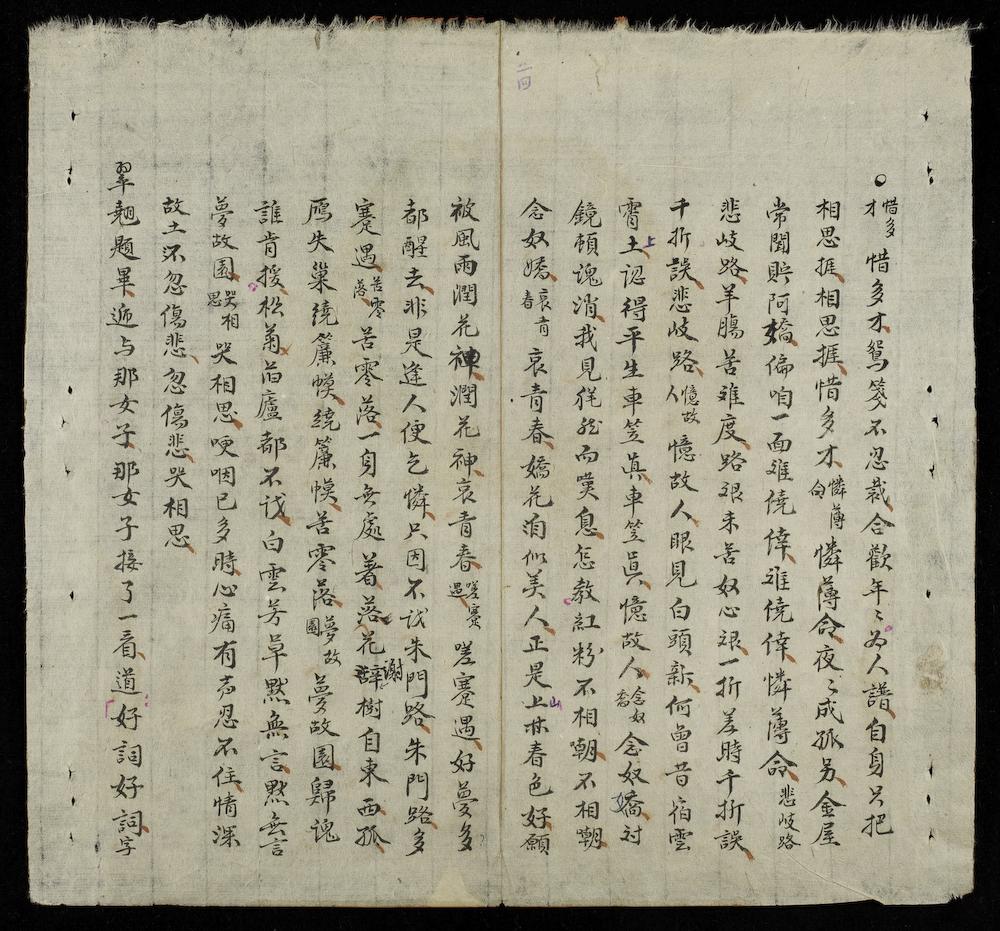 二四
○惜多才 惜多才鴛箋不忍裁合歡年〻为人譜自身只把
相思捱相思捱惜多才 憐薄命 憐薄命夜〻成孤另金屋
常聞貯阿嬌偏咱一面难僥倖难僥倖憐薄命 悲岐路
悲岐路羊腸苦难度路艰未苦奴心艰一折差時千折誤
千折誤悲岐路 憶故人 憶故人眼見白頭新何曾昔宿雲
霄上认得平生車笠真車笠真憶故人 念奴嬌 念奴嬌对
鏡頻魂消我見猶然而嘆息怎教紅粉不相嘲不相嘲
念奴嬌 哀青春 哀青春嬌花洵似美人正是上林春色好願
被風雨潤花神潤花神哀青春 嗟蹇遇 嗟蹇遇好夢多
都醒去非是逢人便乞憐只因不识朱門路朱門路多
蹇遇 苦零落 苦零落一身無處著落花辞謝樹自東西孤
鴈失巢繞簾幙繞簾幙苦零落 夢故園 夢故園歸魂
誰肯援松菊苗廬都不识白雲芳草默無言默無言
夢故園 哭相思 哭相思哽咽已多時心痛有声忍不住情深
故土不忽傷悲忽傷悲哭相思
翠翹題畢遞与那女子那女子接了一看道好詞好詞字